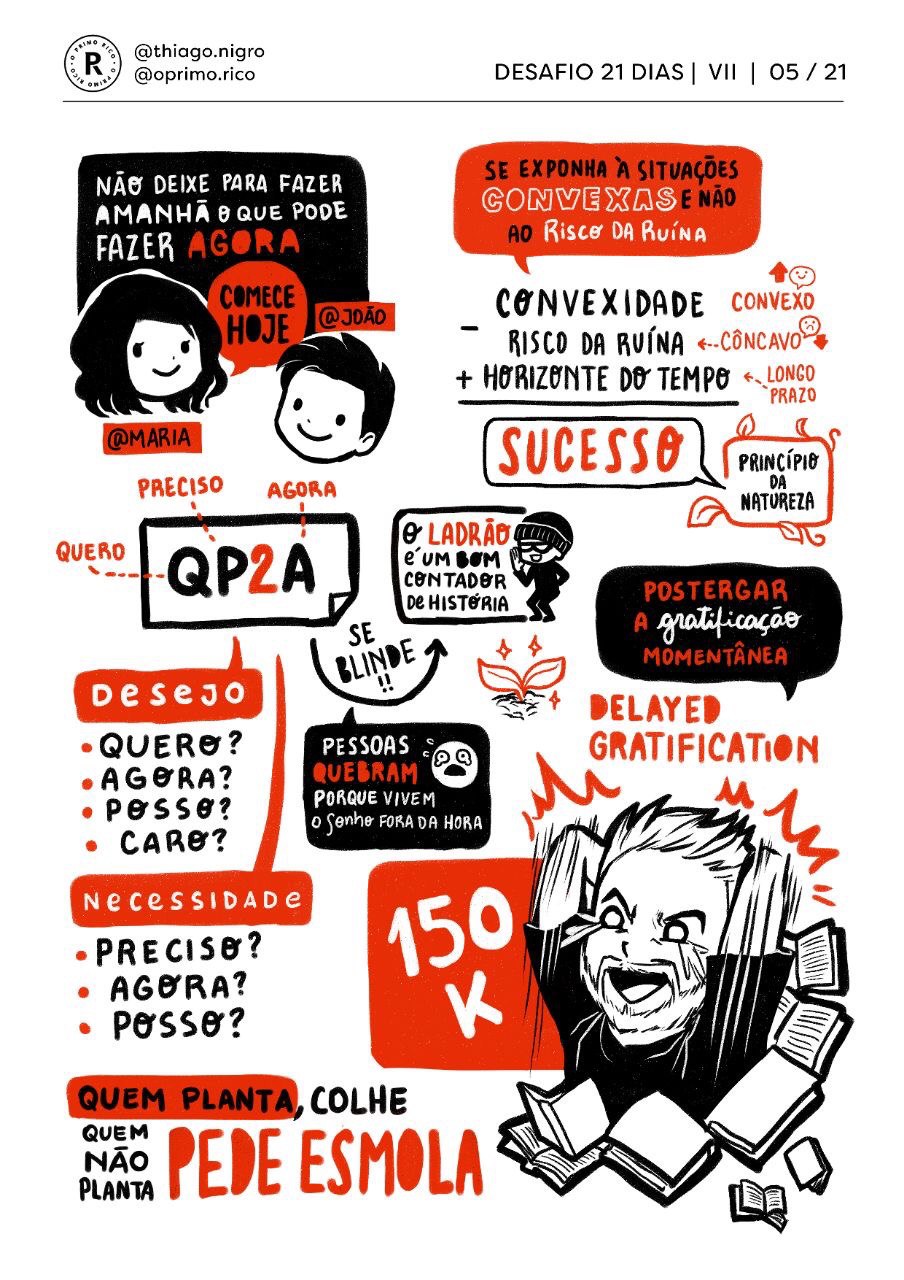 O PRIMO RICO • O PRIMO RICO •
R
@thiago.nigro
@oprimo.rico
DESAFIO 21 DIAS | VII | 05 / 21
NÃO DEIXE PARA FAZER
AMANHÃ O QUE PODE
FAZER AGORA
COMECE
HOJE
@JOÃO
@MARIA
SE EXPONHA À SITUAÇÕES
CONVEXAS E NÃO
AO RISCO DA RUÍNA
CONVEXIDADE
CONVEXO
- RISCO DA RUÍNA
CÔNCAVO
+ HORIZONTE DO TEMPO
LONGO
PRAZO
SUCESSO
PRINCÍPIO
DA
NATUREZA
PRECISO
AGORA
QUERO
QP2A
O LADRÃO
é UM BOM
CONTADOR
De HISTÓRIA
SE
BLINDE
!!
POSTERGAR
A gratificação
MOMENTÂNEA
DELAYED
GRATIFICATION
DeSeJO
• QUERO?
• AGORA?
• POSSO?
• CARO?
PESSOAS
QUEBRAM
PORQUE VIVEM
O Sonho FORA DA HORA
NeCeSSIDADe
• PRECISO?
• AGORA?
• POSSO?
150
K
QUEM PLANTA, COLHE
QUEM
NÃO
PLANTA
PEDE ESMOLA